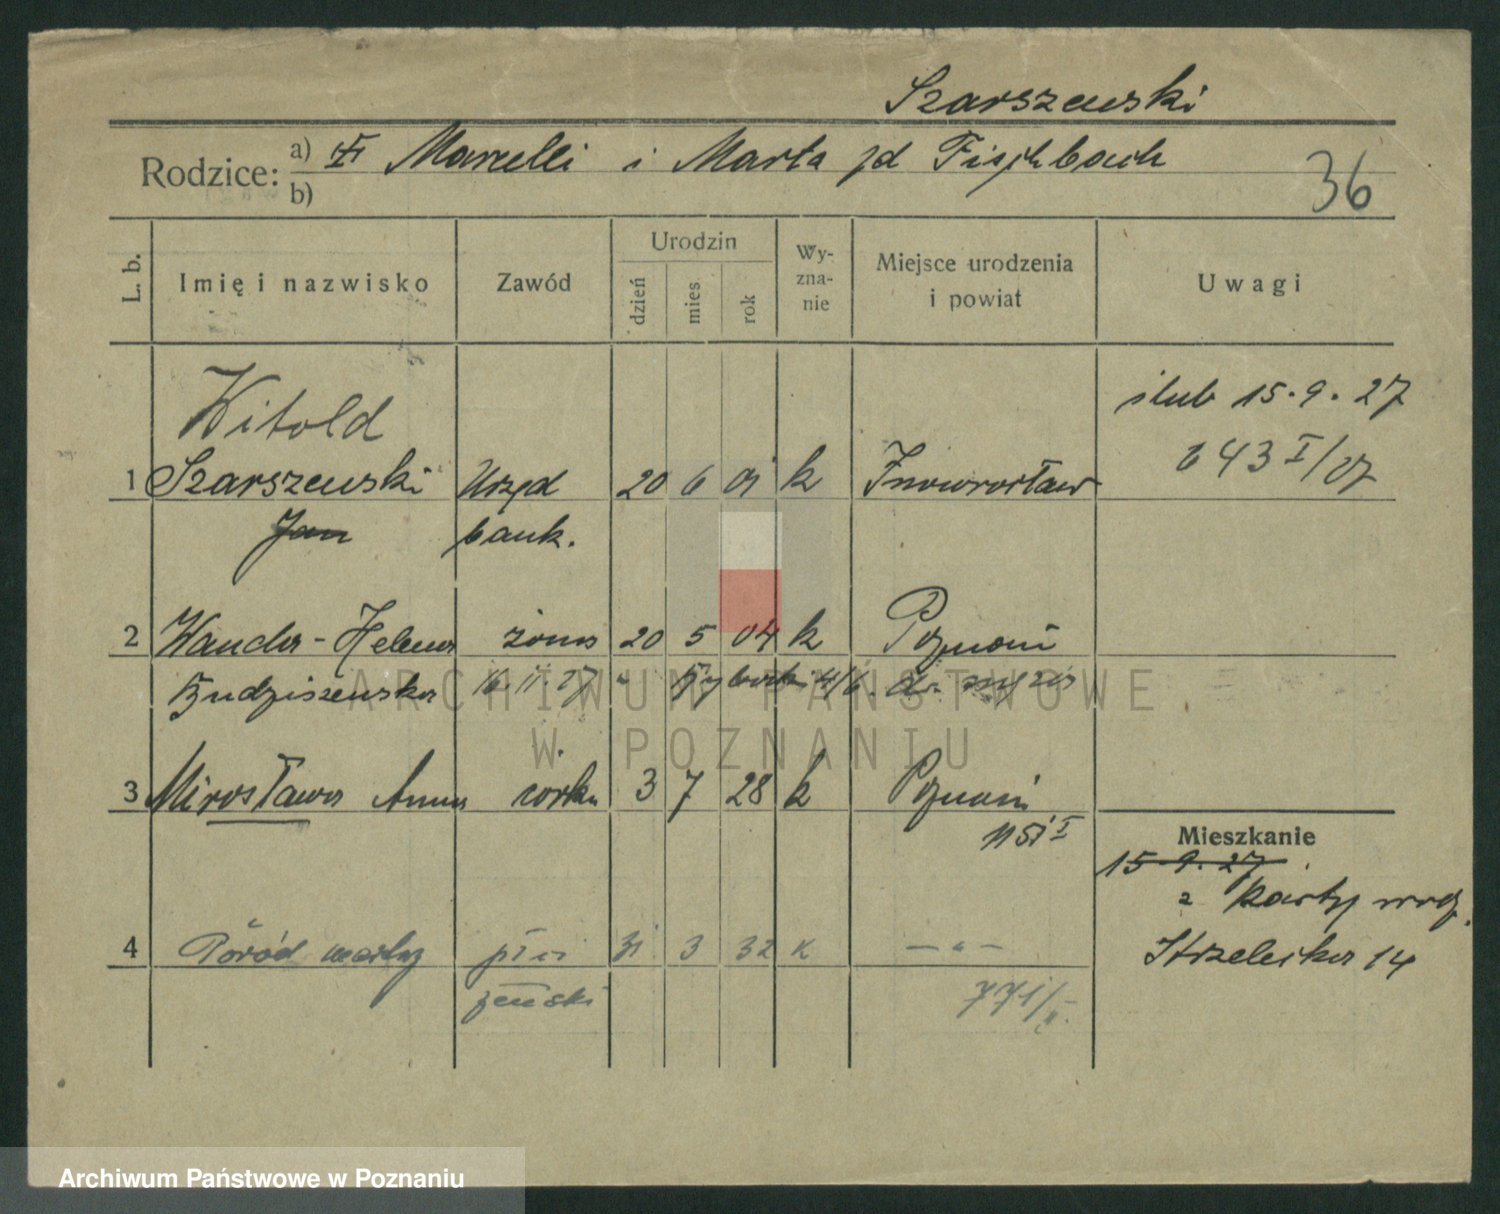 Szarszewski
Rodzice: a) Marceli i Marta zd Fischbach
b)
36
L. b.
Imię i nazwisko
Zawód
Urodzin
dzień
mies
rok
Wy-
zna-
nie
Miejsce urodzenia
i powiat
Uwagi
Witold
ślub 15.9.27
643 I/27
1 Szarszewski Urzęd 20 6 01 k Inowrocław
Jan bank.
2 Wanda-Helena żona 20 5 04 k Poznań
Budziszewska 16.11.27
3 Mirosława Anna córka 3 7 28 k Poznań
Mieszkanie
15.9.27
z karty woj.
Strzelecka 14
4 Poród martwy płci 31 3 32 k - " -
żeński 771/II
ARCHIWUM PAŃSTWOWE
W POZNANIU
Archiwum Państwowe w Poznaniu